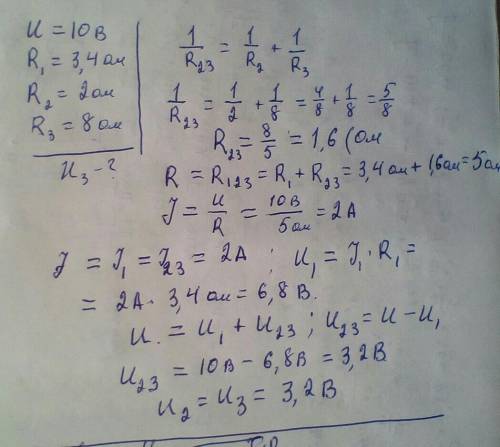 U = 10 В
R₁ = 3,4 ом
R₂ = 2 ом
R₃ = 8 ом
U₃ - ?
1/R₂₃ = 1/R₂ + 1/R₃
1/R₂₃ = 1/2 + 1/8 = 4/8 + 1/8 = 5/8
R₂₃ = 8/5 = 1,6 (ом
R = R₁₂₃ = R₁ + R₂₃ = 3,4 ом + 1,6 ом = 5 ом
J = U/R = 10В/5ом = 2А
J = J₁ = J₂₃ = 2А ; U₁ = J₁ · R₁ =
= 2А · 3,4 ом = 6,8 В.
U = U₁ + U₂₃ ; U₂₃ = U - U₁
U₂₃ = 10В - 6,8В = 3,2В
U₂ = U₃ = 3,2В